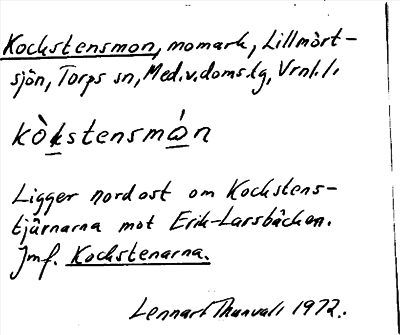 Kockstensmon, momark, Lillmört-
sjön, Torps sn, Med.v.doms.tg, Vrnl.l.
kòkstensmón
Ligger nordost om Kockstens-
tjärnarna mot Erik-Larsbäcken.
Jmf. Kockstenarna.
Lennart Thunvall 1972.